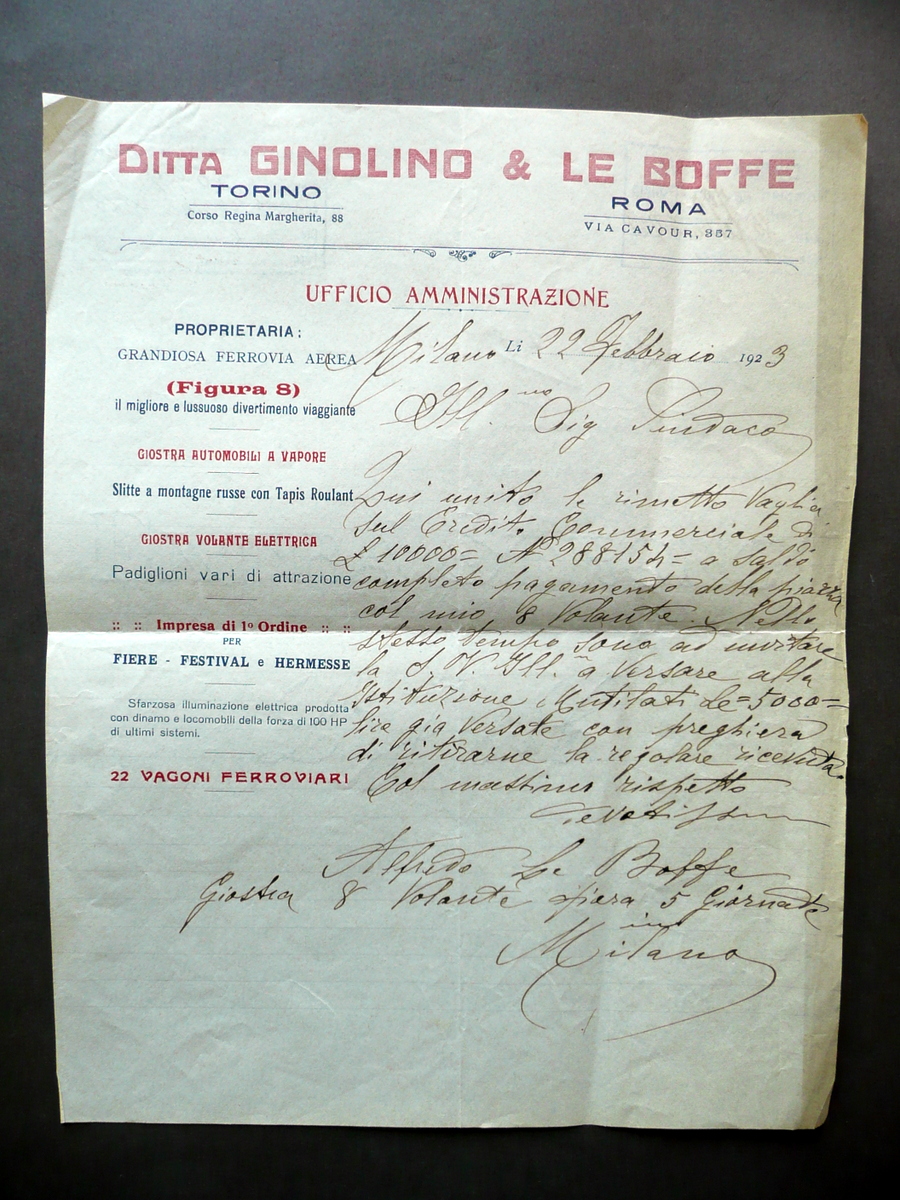 DITTA GINOLINO & LE BOFFE
TORINO
Corso Regina Margherita, 88
ROMA
VIA CAVOUR, 357
UFFICIO AMMINISTRAZIONE
PROPRIETARIA:
GRANDIOSA FERROVIA AEREA
(Figura 8)
il migliore e lussuoso divertimento viaggiante
GIOSTRA AUTOMOBILI A VAPORE
Slitte a montagne russe con Tapis Roulant
GIOSTRA VOLANTE ELETTRICA
Padiglioni vari di attrazione
:: :: Impresa di 1º Ordine :: ::
PER
FIERE - FESTIVAL e HERMESSE
Sfarzosa illuminazione elettrica prodotta
con dinamo e locomobili della forza di 100 HP
di ultimi sistemi.
22 VAGONI FERROVIARI
Milano Li 22 Febbraio 1923
Ill.mo Sig Sindaco
Qui unito le rimetto Vaglia
sul Credito Commerciale di
£ 10000= Nº 288154= a saldo
completo pagamento della piazza
col mio 8 Volante. Nello
stesso tempo sono ad invitare
la S. V. Ill.ma a versare alla
Istituzione Mutilati Le=5000=
lire gia versate con preghiera
di ritirarne la regolare ricevuta.
Col massimo rispetto
Devotissimo
Alfredo Le Boffe
Giostra 8 Volante fiera 5 Giornate
in
Milano